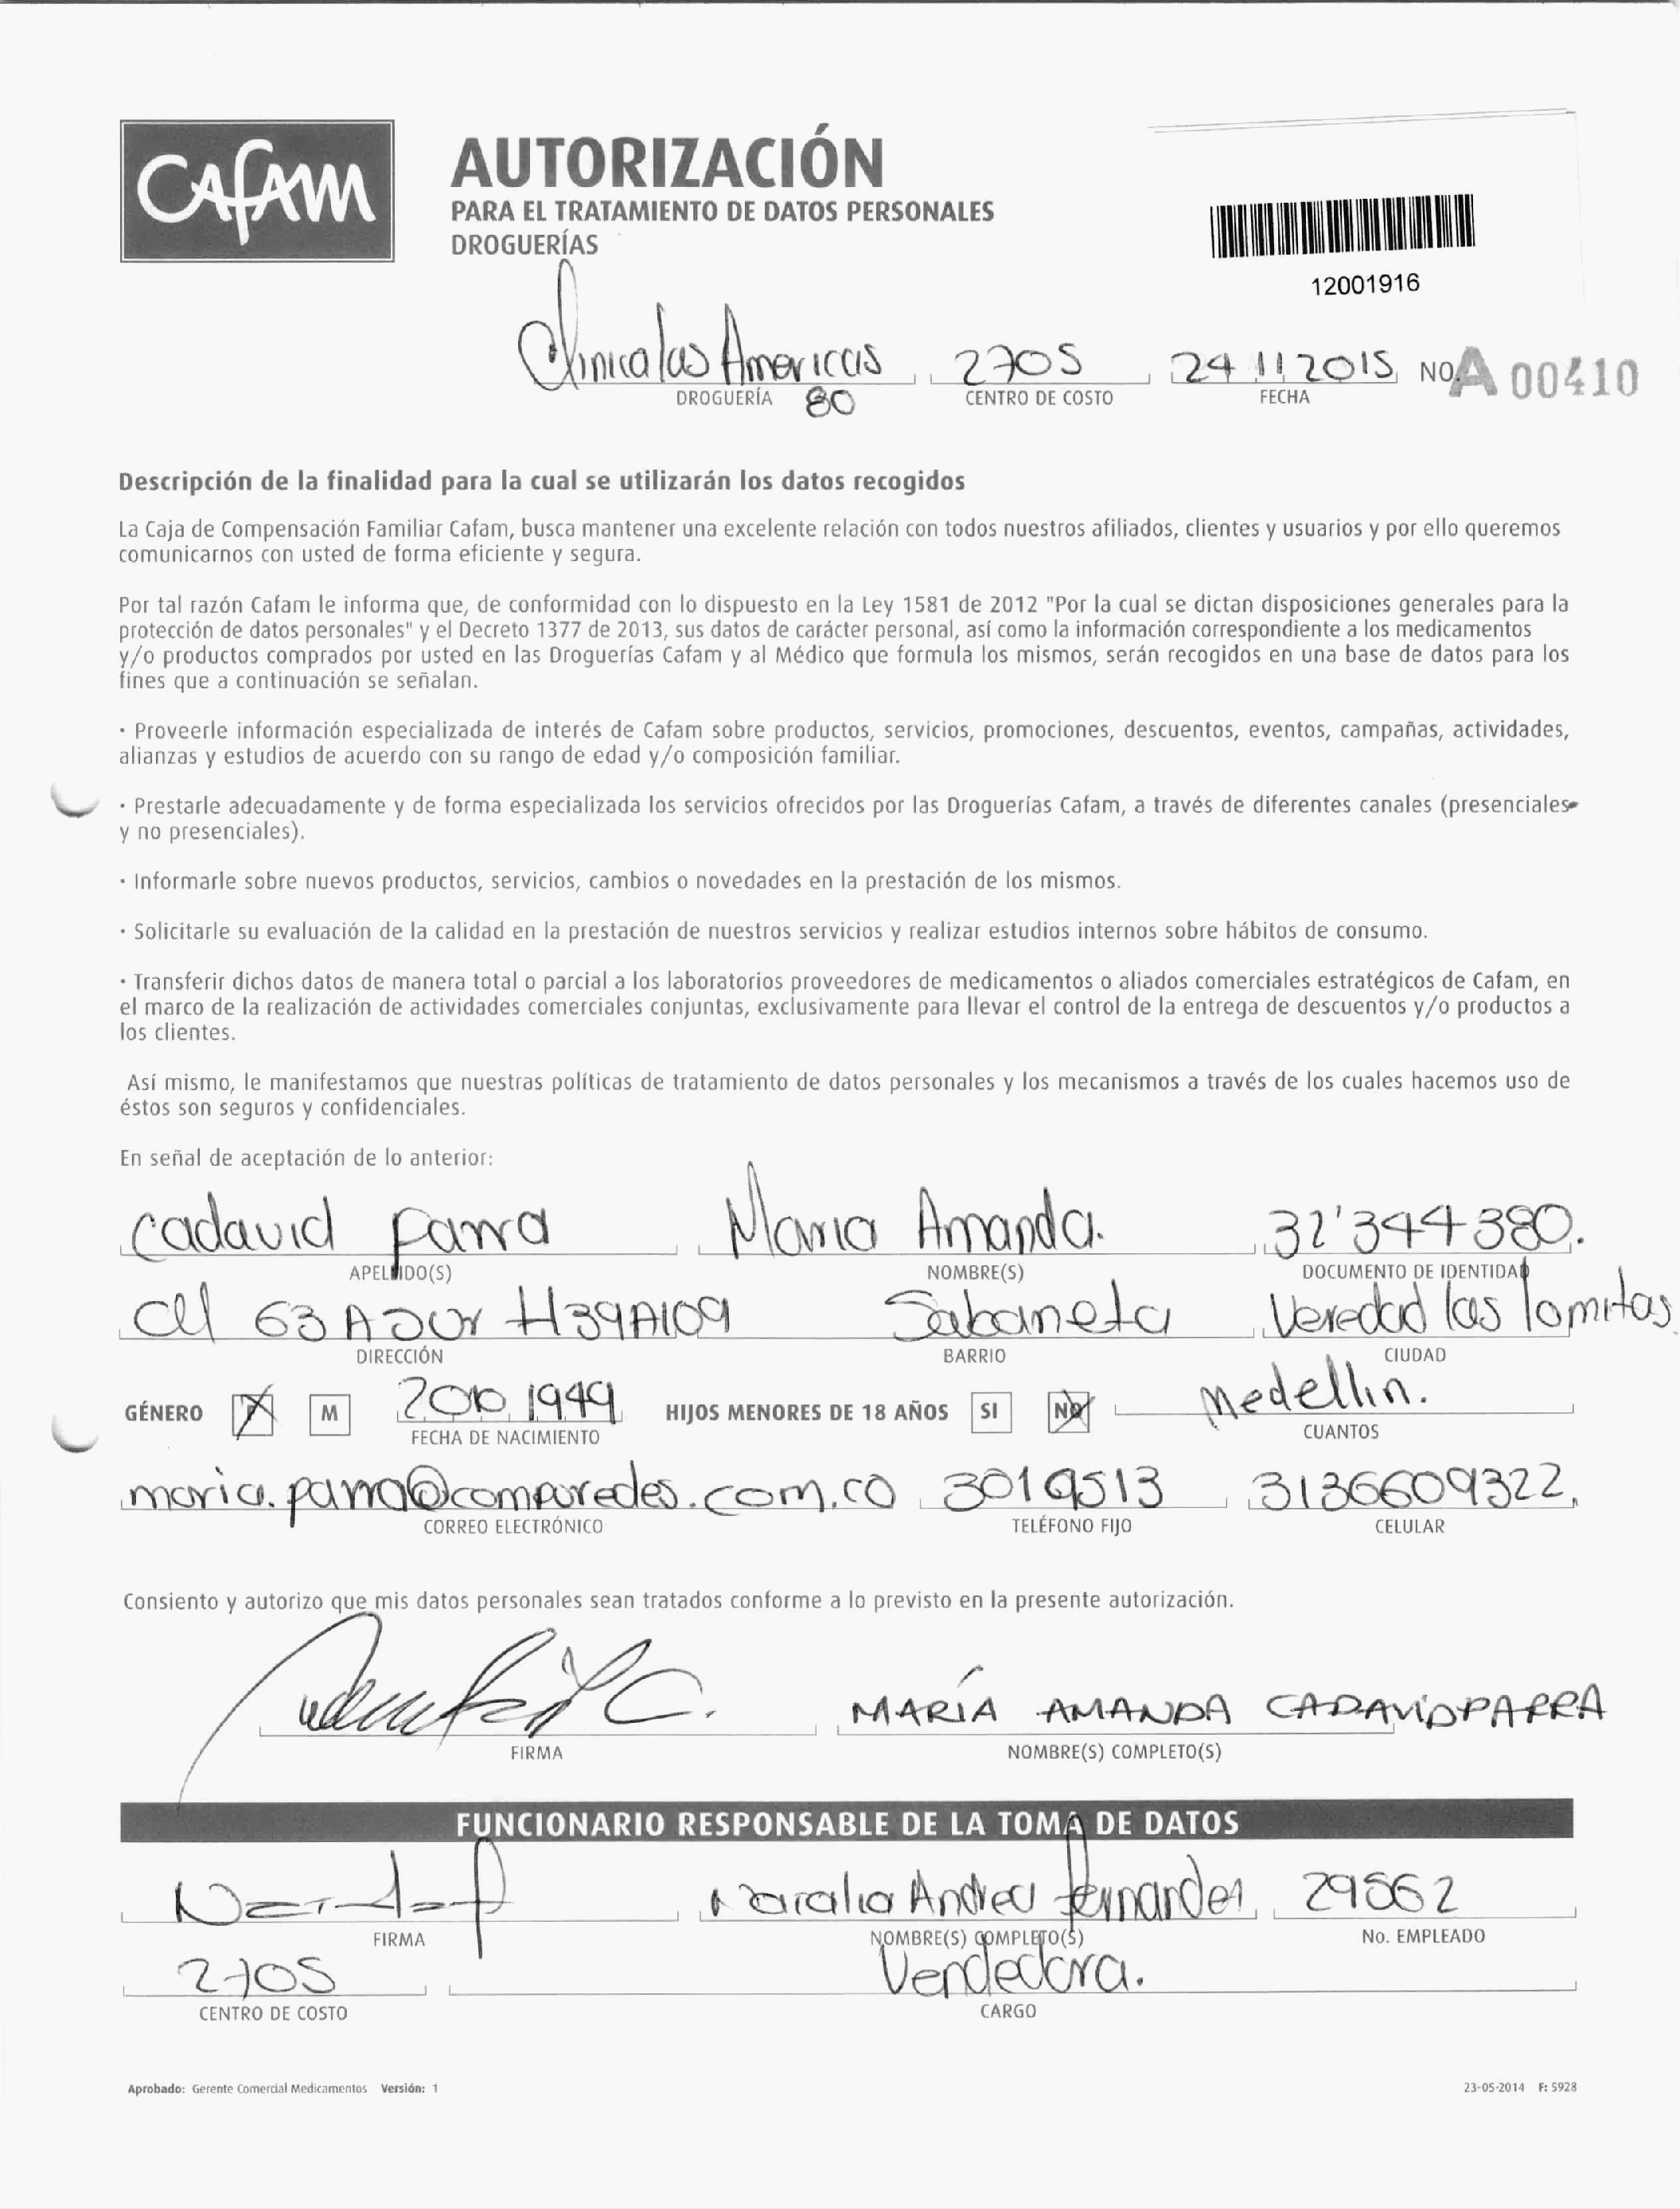 CAFAM
AUTORIZACIÓN
PARA EL TRATAMIENTO DE DATOS PERSONALES
DROGUERÍAS
12001916
Clinica las Americas 2705 24 11 2015 NO. A 00410
DROGUERÍA 80 CENTRO DE COSTO FECHA
Descripción de la finalidad para la cual se utilizarán los datos recogidos
La Caja de Compensación Familiar Cafam, busca mantener una excelente relación con todos nuestros afiliados, clientes y usuarios y por ello queremos
comunicarnos con usted de forma eficiente y segura.
Por tal razón Cafam le informa que, de conformidad con lo dispuesto en la Ley 1581 de 2012 "Por la cual se dictan disposiciones generales para la
protección de datos personales" y el Decreto 1377 de 2013, sus datos de carácter personal, así como la información correspondiente a los medicamentos
y/o productos comprados por usted en las Droguerías Cafam y al Médico que formula los mismos, serán recogidos en una base de datos para los
fines que a continuación se señalan.
· Proveerle información especializada de interés de Cafam sobre productos, servicios, promociones, descuentos, eventos, campañas, actividades,
alianzas y estudios de acuerdo con su rango de edad y/o composición familiar.
· Prestarle adecuadamente y de forma especializada los servicios ofrecidos por las Droguerías Cafam, a través de diferentes canales (presenciales
y no presenciales).
· Informarle sobre nuevos productos, servicios, cambios o novedades en la prestación de los mismos.
· Solicitarle su evaluación de la calidad en la prestación de nuestros servicios y realizar estudios internos sobre hábitos de consumo.
· Transferir dichos datos de manera total o parcial a los laboratorios proveedores de medicamentos o aliados comerciales estratégicos de Cafam, en
el marco de la realización de actividades comerciales conjuntas, exclusivamente para llevar el control de la entrega de descuentos y/o productos a
los clientes.
Así mismo, le manifestamos que nuestras políticas de tratamiento de datos personales y los mecanismos a través de los cuales hacemos uso de
éstos son seguros y confidenciales.
En señal de aceptación de lo anterior:
Cadavid Parra Maria Amanda. 32'344380.
APELLIDO(S) NOMBRE(S) DOCUMENTO DE IDENTIDAD
Cll 63 A Sur #39A109 Sabaneta Veredad las lomitas
DIRECCIÓN BARRIO CIUDAD
GÉNERO M 1949 HIJOS MENORES DE 18 AÑOS SI NO Medellin.
FECHA DE NACIMIENTO CUANTOS
maria.parra@comparedes.com.co 3019513 3136609322
CORREO ELECTRÓNICO TELÉFONO FIJO CELULAR
Consiento y autorizo que mis datos personales sean tratados conforme a lo previsto en la presente autorización.
MARÍA AMANDA CADAVID PARRA
FIRMA NOMBRE(S) COMPLETO(S)
FUNCIONARIO RESPONSABLE DE LA TOMA DE DATOS
Andrea fernandez 29562
FIRMA NOMBRE(S) COMPLETO(S) No. EMPLEADO
2705 Vendedora.
CENTRO DE COSTO CARGO
Aprobado: Gerente Comercial Medicamentos Versión: 1 23-05-2014 F: 5928